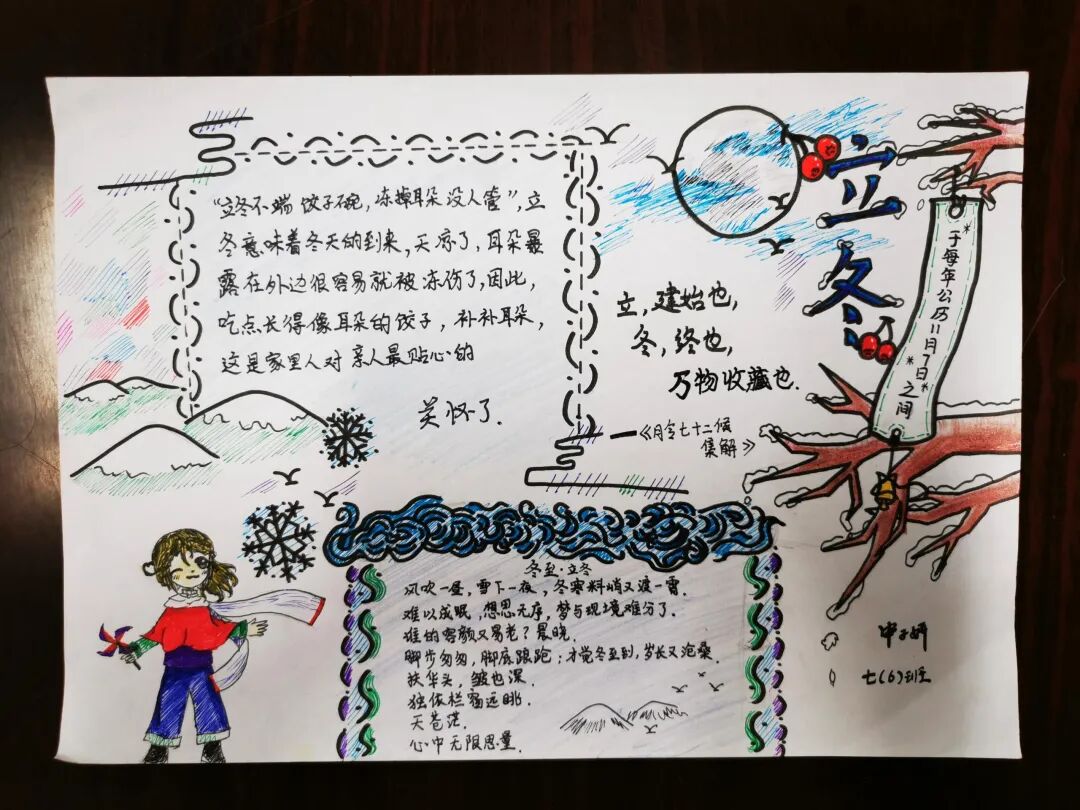 立冬
于每年公历11月7日之间
"立冬不端饺子碗,冻掉耳朵没人管",立
冬意味着冬天的到来,天凉了,耳朵最
露在外边很容易就被冻伤了,因此,
吃点长得像耳朵的饺子,补补耳朵,
这是家里人对亲人最贴心的
关怀了.
立,建始也,
冬,终也,
万物收藏也.
—《月令七十二候
集解》
冬至·立冬
风吹一昼,雪下一夜,冬寒料峭又渡一宵.
难以成眠,想思无序,梦与现境难分了.
谁的容颜又易老?晨晓.
脚步匆匆,脚底踉跄;才觉冬至到,岁长又沧桑.
扶华头,皱也深.
独依栏窗远眺.
天苍茫.
心中无限思量.
七(6)班